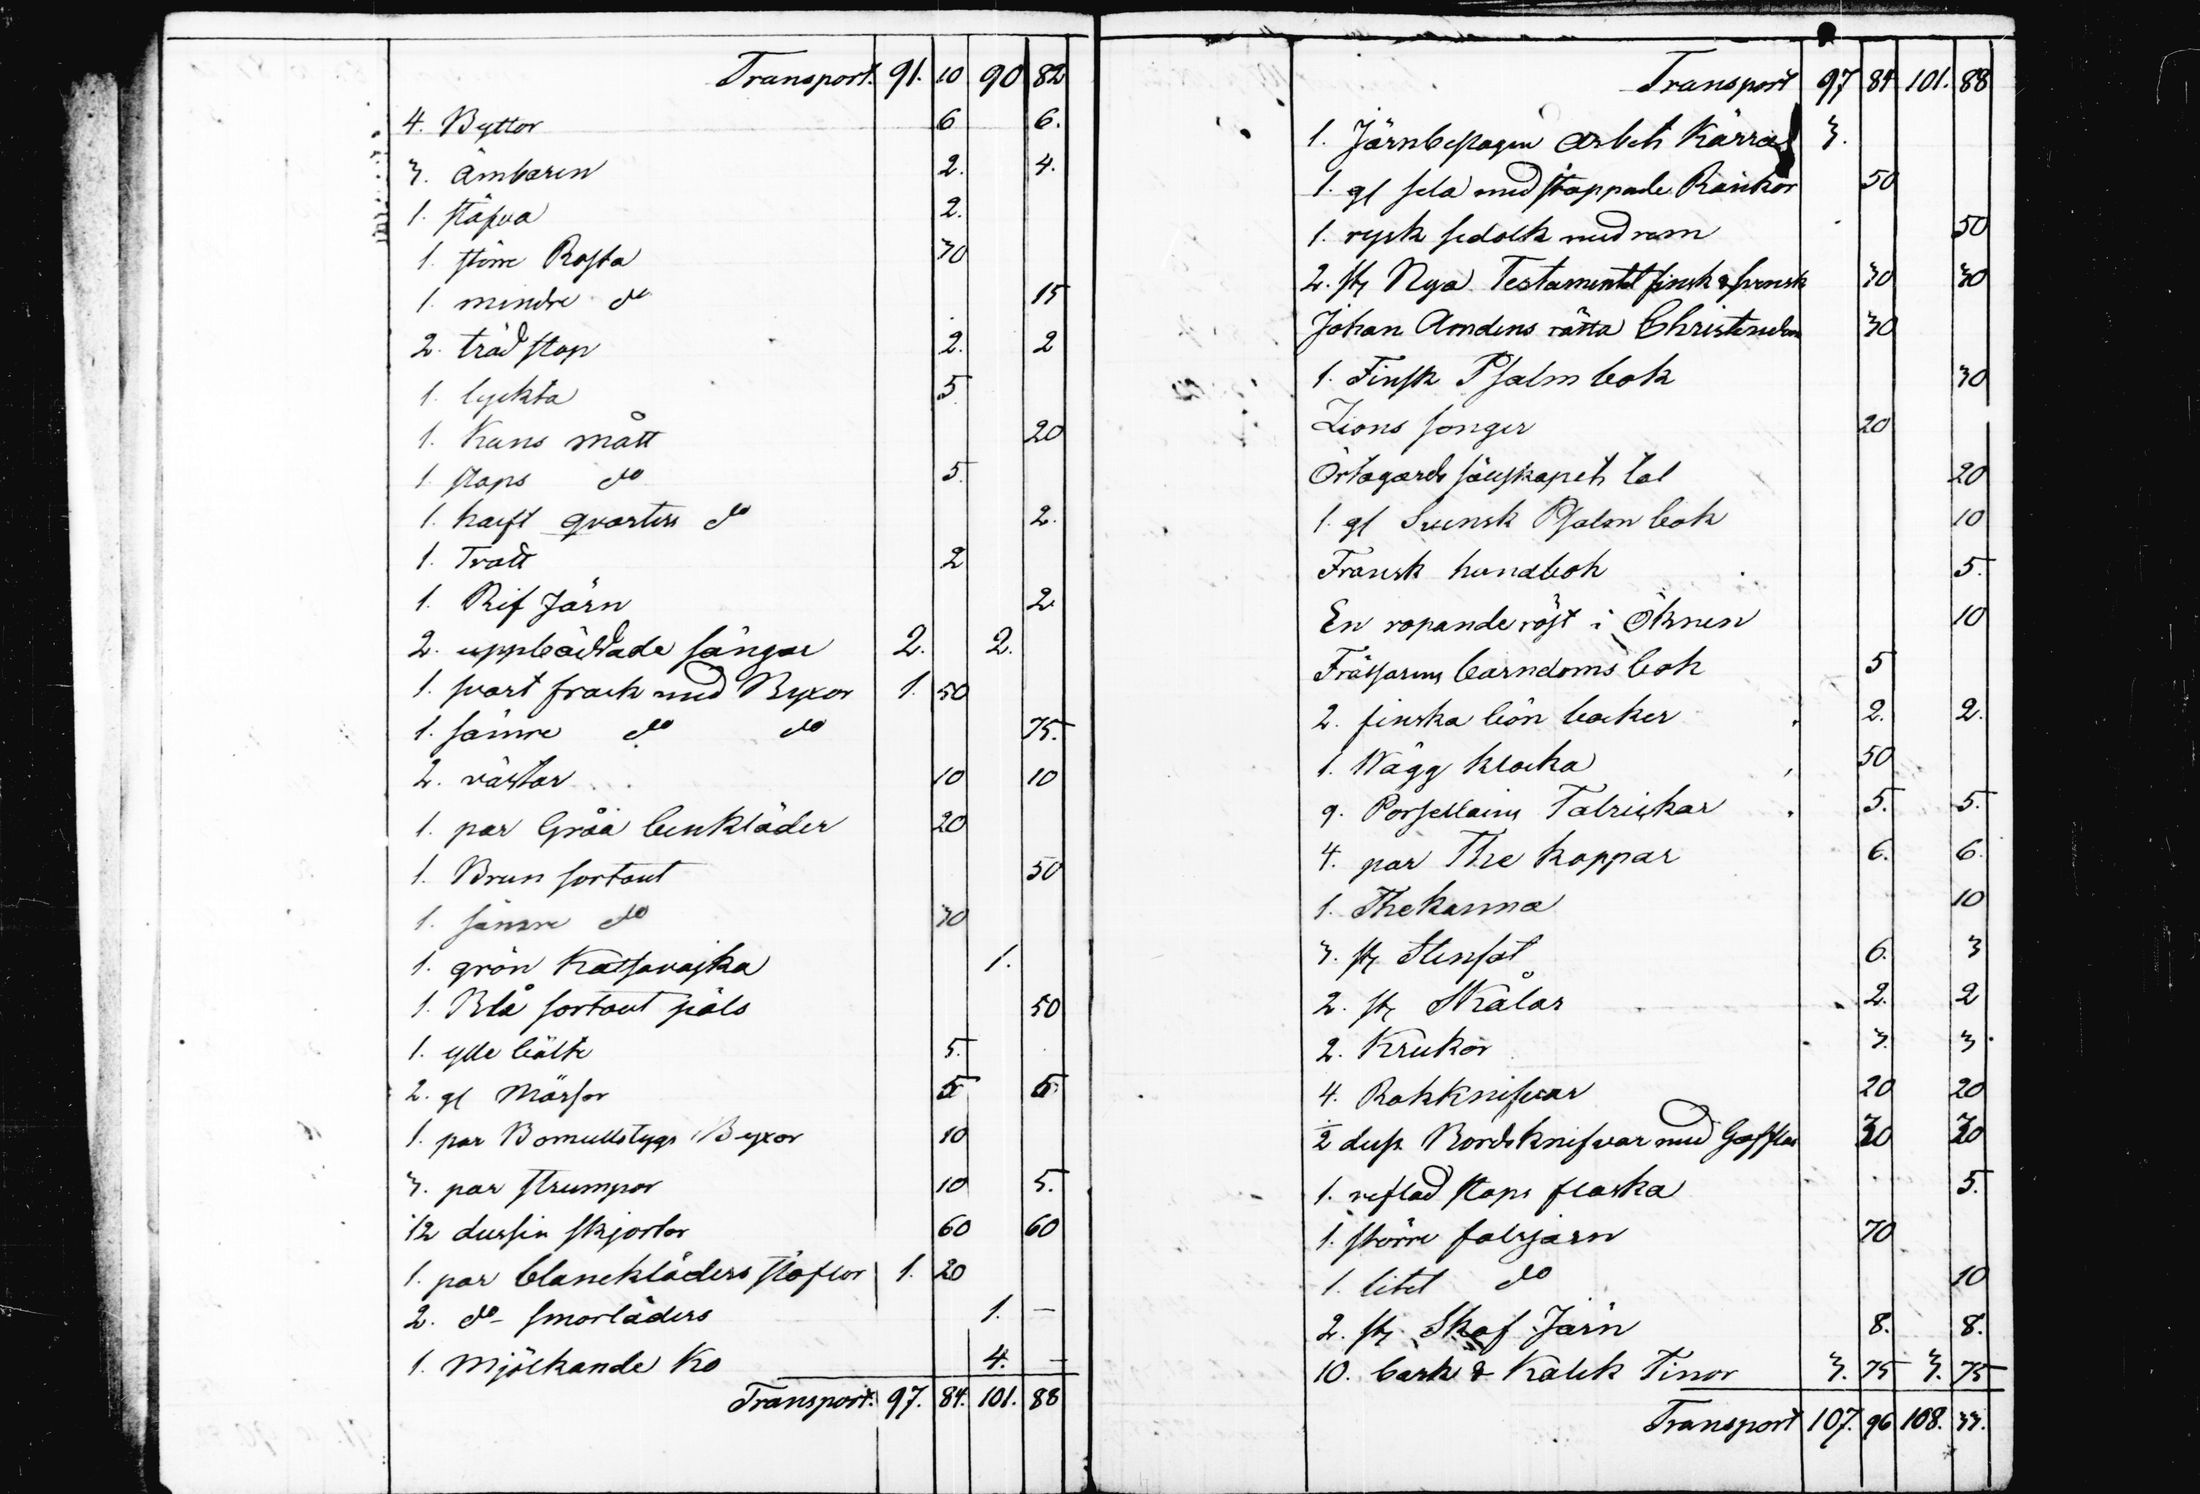 Transport. 91. 10 90 82
4. Byttor 6 6.
3. Ämbaren 2. 4.
1. stäfva 2.
1. större Rosta 30
1. mindre do 15
2. träd stop 2. 2
1. lyckta 5.
1. Kans mått 20
1. stops do 5.
1. halft qvarters do 2.
1. Tratt 2
1. Rif Järn 2
2. uppbäddade sängar 2. 2.
1. svart frack med Byxor 1. 50
1. sämre do do 75.
2. västar 10 10
1. par Gråa benkläder 20
1. Brun sortout 50
1. sämre do 30
1. grön Katsavajka 1.
1. Blå sortout päls 50
1. ylle bälte 5.
2. gl Mössor 5 5
1. par Bomullstygs Byxor 10
3. par strumpor 10 5.
1/2 dussin skjortor 60 60
1. par blanckläders stöflor 1. 20
2. do smorläders 1. —
1. Mjölkande Ko 4. —
Transport. 97. 84. 101. 88
Transport 97 84 101. 88
1. Järnbeslagen arbets Kärra 3.
1. gl sela med stoppade Rankor 50
1. rysk sedolk med rem 50
2. st Nya Testamentet finsk & svensk 30 30
Johan Arndens rätta Christendom 30
1. Finsk Psalm bok 30
Zions songer 20
Örtagards sällskapets tal 20
1. gl Svensk Psalm bok 10
Fransk handbok 5.
En ropande röst i Öknen 10
Frälsarens barndoms bok 5
2. finska bön böcker 2. 2.
1. Wägg klocka 50
9. Porsellains Talrickar 5. 5.
4. par The koppar 6. 6
1. Thekanna 10
3. st Stenfat 6. 3
2. st Skålar 2. 2
2. Krukor 3. 3.
4. Rakknifvar 20 20
1/2 duss. Bordsknifvar med Gafflar 30 30
1. reflad stops flaska 5.
1. större falsjärn 70
1. litet do 10
2. st Skaf Järn 8. 8.
10. bark & Kalck Tinor 3. 75 3. 75
Transport 107. 96 108. 33.